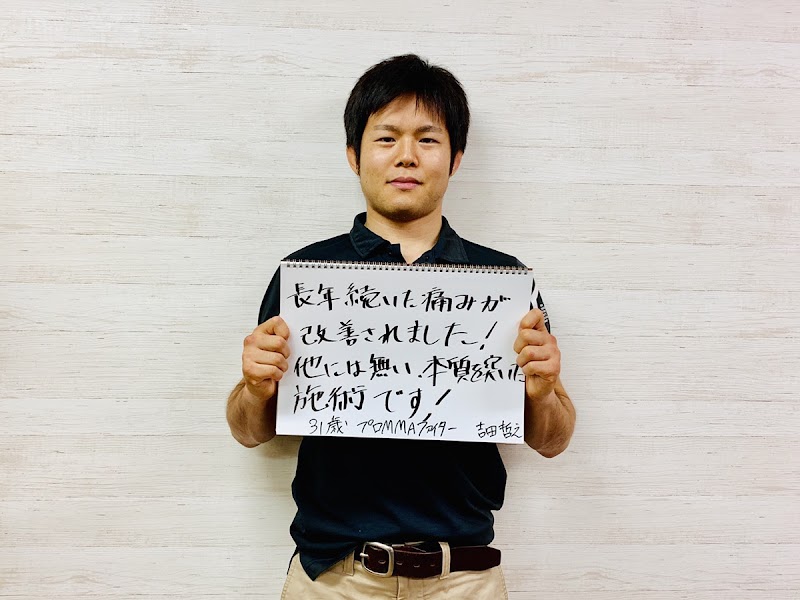 長年続いた痛みが
改善されました!
他には無い、本質を突いた
施術です!
31歳 プロMMAファイター 吉田哲之